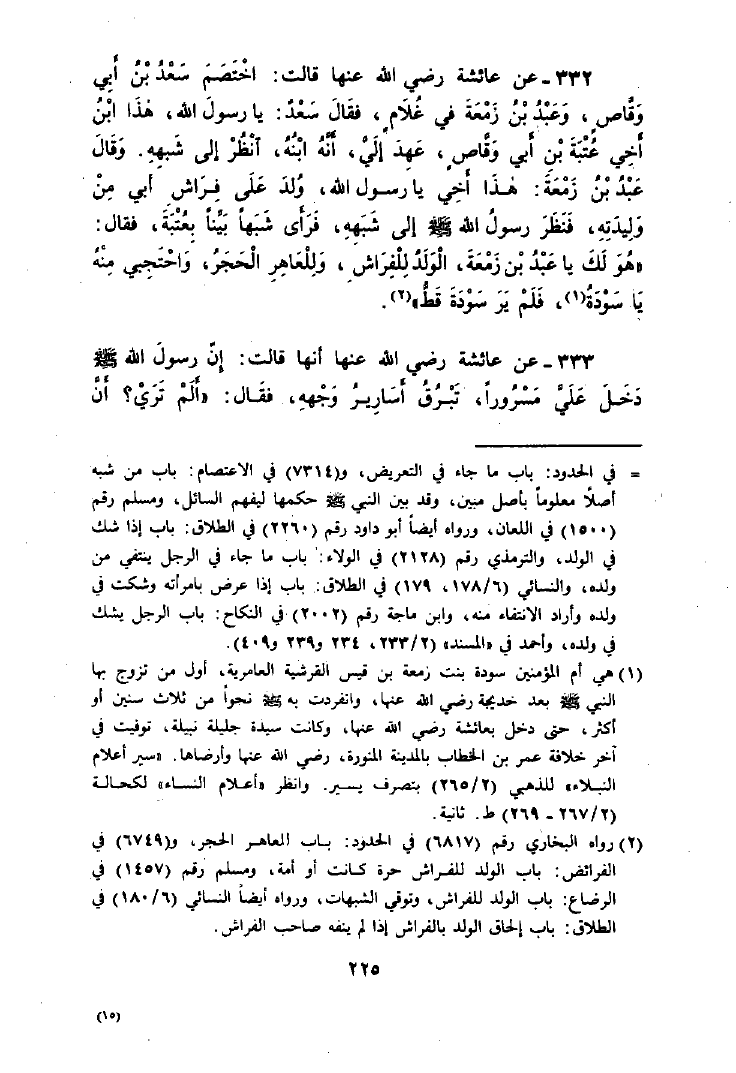 ٣٣٢ ـ عن عائشة رضي الله عنها قالت: اخْتَصَمَ سَعْدُ بْنُ أَبي
وَقَّاصٍ، وَعَبْدُ بْنُ زَمْعَةَ في غُلَامٍ، فقَالَ سَعْدٌ: يا رسولَ الله، هٰذَا ابْنُ
أَخِي عُتْبَةَ بْنِ أَبي وَقَّاصٍ، عَهِدَ إِلَيَّ، أَنَّهُ ابْنُهُ، اَنْظُرْ إلى شَبَهِهِ. وَقَالَ
عَبْدُ بْنُ زَمْعَةَ: هٰذَا أَخِي يا رسولَ الله، وُلِدَ عَلَى فِرَاشِ أَبي مِنْ
وَلِيدَتِهِ، فَنَظَرَ رسولُ الله ﷺ إلى شَبَهِهِ، فَرَأَى شَبَهاً بَيِّناً بِعُتْبَةَ، فقال:
«هُوَ لَكَ يا عَبْدُ بْن زَمْعَةَ، الْوَلَدُ لِلْفِرَاشِ، وَلِلْعَاهِرِ الْحَجَرُ، وَاحْتَجِبي مِنْهُ
يَا سَوْدَةُ(١)، فَلَمْ يَرَ سَوْدَةَ قَطُّ»(٢).
٣٣٣ ـ عن عائشة رضي الله عنها أنها قالت: إنّ رسولَ الله ﷺ
دَخَلَ عَلَيَّ مَسْرُوراً، تَبْرُقُ أَسَارِيرُ وَجْهِهِ، فقَال: «أَلَمْ تَرَيْ؟ أَنَّ
= في الحدود: باب ما جاء في التعريض، و(٧٣١٤) في الاعتصام: باب من شبه
أصلاً معلوماً بأصل مبين، وقد بين النبي ﷺ حكمها ليفهم السائل، ومسلم رقم
(١٥٠٠) في اللعان، ورواه أيضاً أبو داود رقم (٢٢٦٠) في الطلاق: باب إذا شك
في الولد، والترمذي رقم (٢١٢٨) في الولاء: باب ما جاء في الرجل ينتفي من
ولده، والنسائي (١٧٨/٦، ١٧٩) في الطلاق: باب إذا عرض بامرأته وشكت في
ولده وأراد الانتفاء منه، وابن ماجة رقم (٢٠٠٢) في النكاح: باب الرجل يشك
في ولده، وأحمد في «المسند» (٢٣٣/٢، ٢٣٤ و٢٣٩ و٤٠٩).
(١) هي أم المؤمنين سودة بنت زمعة بن قيس القرشية العامرية، أول من تزوج بها
النبي ﷺ بعد خديجة رضي الله عنها، وانفردت به ﷺ نحواً من ثلاث سنين أو
أكثر، حتى دخل بعائشة رضي الله عنها، وكانت سيدة جليلة نبيلة، توفيت في
آخر خلافة عمر بن الخطاب بالمدينة المنورة، رضي الله عنها وأرضاها. «سير أعلام
النبلاء» للذهبي (٢٦٥/٢) بتصرف يسير. وانظر «أعلام النساء» لكحالة
(٢٦٧/٢ ـ ٢٦٩) ط. ثانية.
(٢) رواه البخاري رقم (٦٨١٧) في الحدود: باب للعاهر الحجر، و(٦٧٤٩) في
الفرائض: باب الولد للفراش حرة كانت أو أمة، ومسلم رقم (١٤٥٧) في
الرضاع: باب الولد للفراش، وتوقي الشبهات، ورواه أيضاً النسائي (١٨٠/٦) في
الطلاق: باب إلحاق الولد بالفراش إذا لم ينفه صاحب الفراش.
٢٢٥
(١٥)